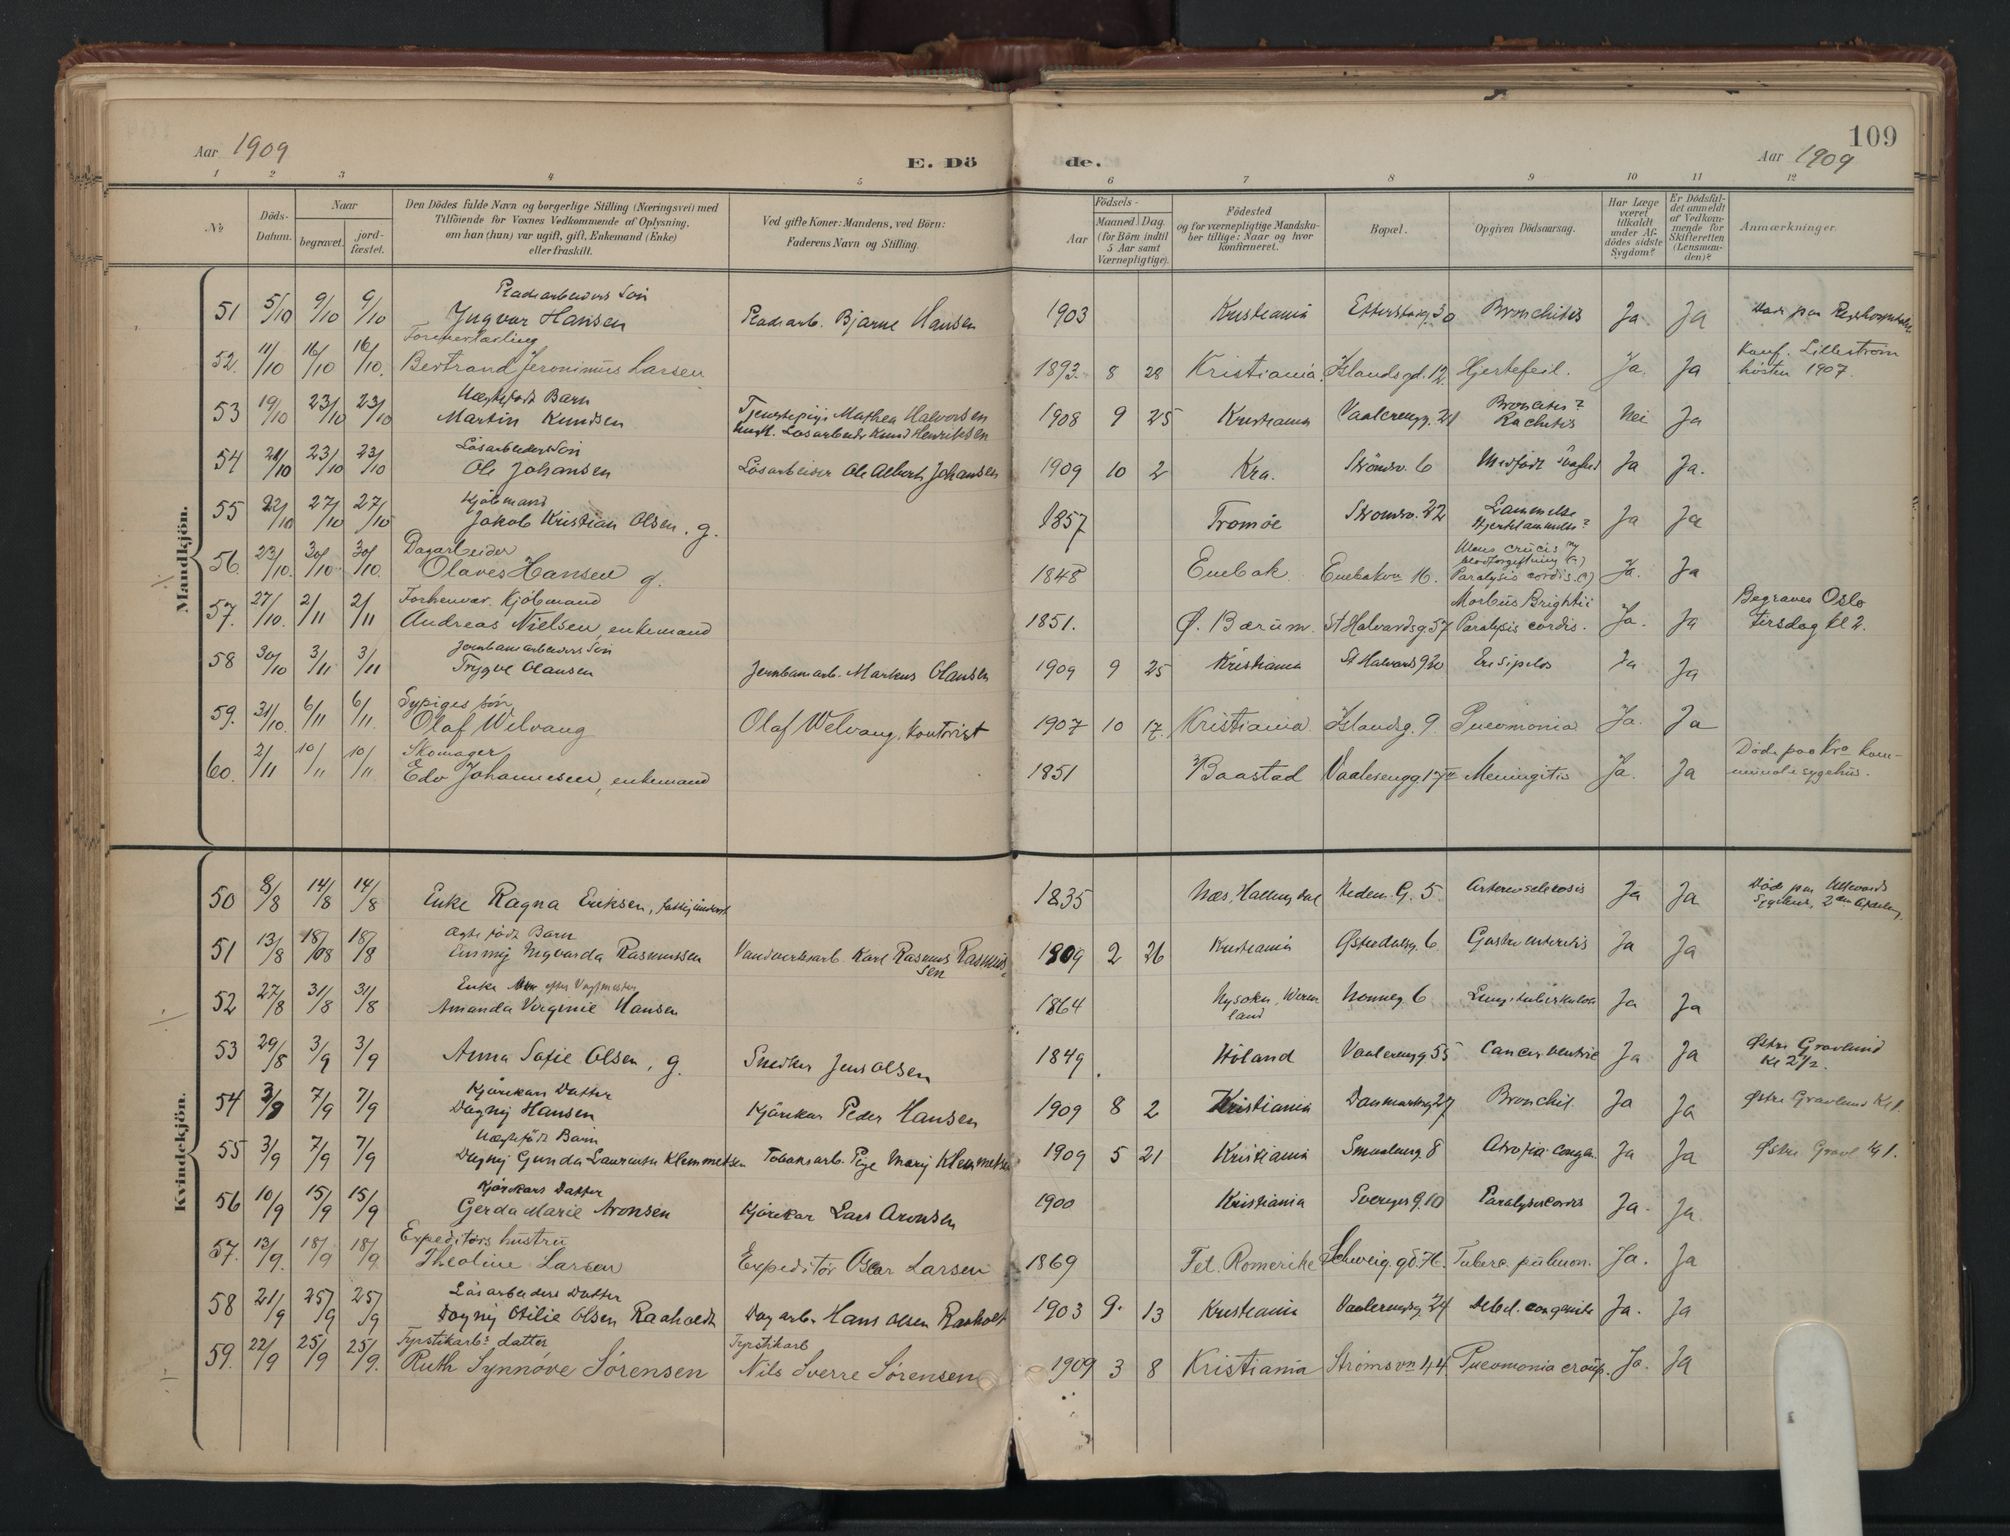 109
Aar 1909
E. Dö
de.
Aar 1909
1 2 3 4 5 6 7 8 9 10 11 12
№
Döds-Datum.
Naar
begravet.
jord-fæstet.
Den Dödes fulde Navn og borgerlige Stilling (Næringsvei) med
Tilföiende for Voxnes Vedkommende af Oplysning,
om han (hun) var ugift, gift, Enkemand (Enke)
eller fraskilt.
Ved gifte Koner: Mandens, ved Börn:
Faderens Navn og Stilling.
Födsels-
Aar
Maaned Dag.
(for Börn indtil
5 Aar samt
Værnepligtige).
Födested
og for værnepligtige Mandska-
ber tillige: Naar og hvor
konfirmeret.
Bopæl.
Opgiven Dödsaarsag.
Har Læge
været
tilkaldt
under Af-
dödes sidste
Sygdom?
Er Dödsfal-
det anmeldt
af Vedkom-
mende for
Skifteretten
(Lensman-
den)?
Anmærkninger.
Mandkjön.
51 5/10 9/10 9/10 Ingvar Hansen Bjarne Hansen 1903 Kristiania 30 Bronchitis Ja Ja
52. 11/10 16/10 16/10. Bertrand Jeronimus Larsen 1893. 8 28 Kristiania. Islandsgd. 12 Hjertefeil. Ja. Ja Konf. Lillestrøm
høsten 1907.
Uægtefødt Barn
53 19/10 23/10 23/10 Martin Knudsen Mathea Halvorsen
Løsarbeider Knud Henriksen
1908 9 25 Kristiania Vaalerengg. 21 Bronchitis?
Rachitis Nei Ja
Løsarbeiders Søn
54 21/10 23/10 23/10 Ole Johansen Løsarbeider Ole Albert Johansen 1909 10 2 Kra. Strømsv. 6 Medfødt Svaghed Ja Ja.
Kjøbmand
55 22/10 27/10 27/10 Jakob Kristian Olsen. g. 1857 Tromøe Strømsv. 22 Ja Ja
Dagarbeider
56. 23/10. 30/10 30/10. Olaves Hansen g. 1848 Enebak. Enebakvn 16. Ulcus crucis
Blodforgiftning (?)
Paralysis cordis. (?) Ja. Ja
Forhenvær. Kjøbmand
57. 27/10. 2/11 2/11 Andreas Nielsen, enkemand 1851. Ø. Bærum. St Halvardsg. 57 Morbus Brightii
Paralysis cordis. Ja. Ja Begraves Oslo
tirsdag kl 2.
Jernbanearbeiders Søn
58 30/10 3/11 3/11 Trygve Olausen Jernbanearb. Markus Olausen 1909 9 25 Kristiania St Halvardsg 20 Erisipelas Ja Ja
Sypiges søn
59. 31/10. 6/11 6/11. Olaf Welvang Olaf Welvang, kontorist 1907 10 17. Kristiania. Islandsg. 9. Pneumonia. Ja. Ja
Skomager
60. 2/11 10/11 10/11 Edv Johannesen, enkemand 1851 Baastad Vaalerengg 17 II Meningitis Ja. Ja Døde paa Kra kom-
munale sygehus.
Kvindekjön.
50 8/8 14/8 14/8 Enke Ragna Eriksen, 1835 Næs, Hallingdal Neden. G. 5 Arteriosclerosis Ja Ja Død paa Ullevaals
Sygehus, 2den Afdeling
Ægte født Barn
51 13/8 18/08 18/8 Emmy Ingvarda Rasmussen Vandverksarb. Karl Rasmus Rasmus-
sen
1909 2 26 Kristiania Østerdalsg. 6 Gastroenteritis Ja Ja
Enke efter Vagtmester
52 27/8 31/8 31/8 Amanda Virginie Hansen 1864 Nysoker, Werm-
land Nonneg. 6 Lungetuberkulose Ja Ja
53 29/8 3/9 3/9 Anna Sofie Olsen, g. Snedker Jens Olsen 1849. Høland Vaalerengg 55 Cancer ventric Ja Ja Østre Gravlund
Kl 2½.
Kjørekars Datter
54 3/9 7/9 7/9 Dagny Hansen Kjørekar Peder Hansen 1909 8 2 Kristiania Danmarksg 27 Bronchit. Ja Ja Østre Gravlund Kl 1.
Uægtefødt Barn
55 3/9 7/9 7/9 Dagny Gunda Laurentse Klemmetsen Tobaksarb. Pige Mary Klemmetsen 1909 5 21 Kristiania Smaalensg. 8 Atrofia congen. Ja Ja Østre Gravl Kl 1.
Kjørekars Datter
56 10/9 15/9 15/9 Gerda Marie Aronsen Kjørekar Lars Aronsen 1900 Kristiania Sverigesg. 10 Paralysis cordis Ja. Ja
Expeditørs hustru
57. 13/9. 18/9 18/9. Theoline Larsen Expeditør Oscar Larsen 1869 Fet. Romerike Schweig.gd. 76. Tuberc. pulmon. Ja. Ja
Løsarbeiders Datter
58 21/9 25/9 25/9 Dagny Otilie Olsen Raaholdt Dagarb. Hans Olsen Raaholt 1903 9. 13 Kristiania Vaalerengg. 24 Debil. congenita Ja. Ja
Fyrstikarb's datter
59. 22/9 25/9 25/9. Ruth Synnøve Sørensen Fyrstikarb
Nils Sverre Sørensen 1909 3 8 Kristiania Strømsvn 44 Pneumonia croup. Ja. Ja